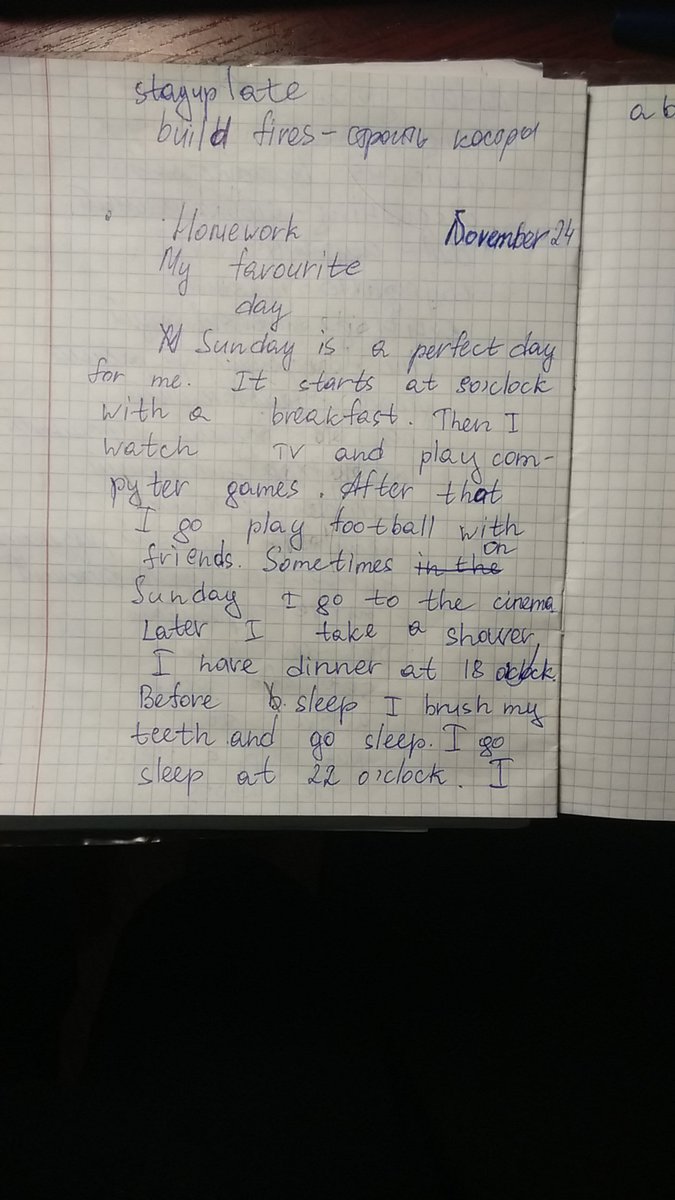 stayup late
build fires - строить косоры
a b
Homework November 24
My favourite
day
Sunday is a perfect day
for me. It starts at 8o'clock
with a breakfast. Then I
watch TV and play com-
pyter games. After that
I go play football with
on
friends. Sometimes in the
Sunday I go to the cinema
Later I take a shower,
I have dinner at 18 oclock.
Before b. sleep I brush my
teeth and go sleep. I go
sleep at 22 o'clock. I